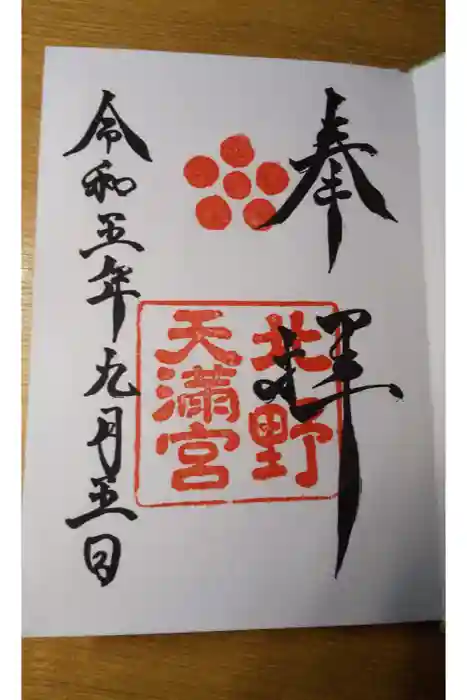 奉拝
北野
天満宮
令和五年九月五日